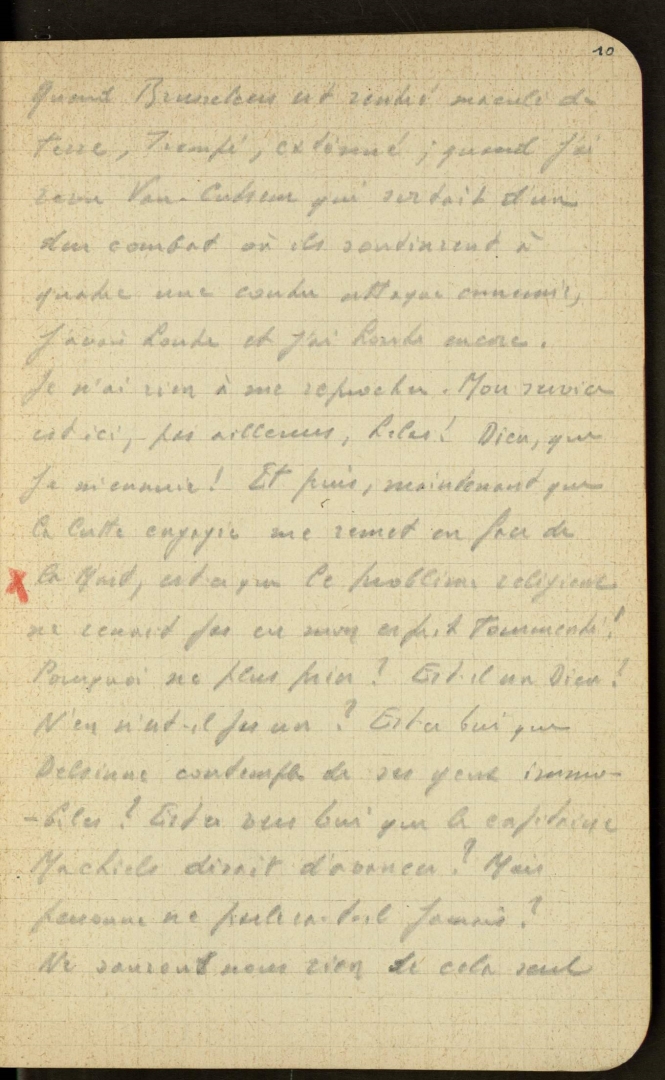 10
Quand Brusseleers est rentré maculé de
terre, trempé, exténué ; quand j'ai
revu Van-Cutsem qui sortait d'un
dur combat où ils soutinrent à
quatre une contre attaque ennemie,
j'avais honte et j'ai honte encore.
Je n'ai rien à me reprocher. Mon service
est ici, pas ailleurs, hélas! Dieu, que
je m'ennuie! Et puis, maintenant que
la lutte engagée me remet en face de
la Mort, est-ce que le problème religieux
ne renait pas en mon esprit tourmenté!
Pourquoi ne plus prier? Est-il un Dieu?
N'en n'est-il pas un? Est-ce lui que
Delsinne contemple de ses yeux immo-
-biles? Est-ce vers lui que le capitaine
Machiels disait d'avancer? Mais
personne ne parlera-t-il jamais?
Ne saurons nous rien si cela seul